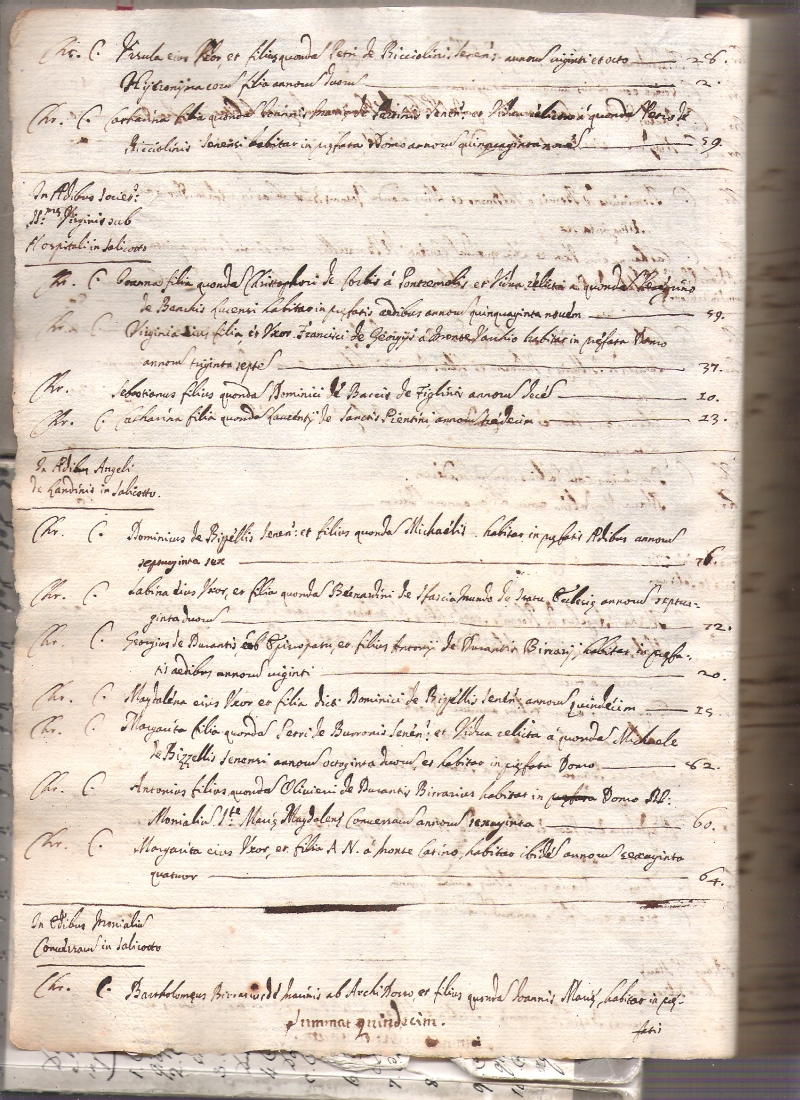 Chr. C. Ursula eius Uxor, et filia quonda Petri de Bicciolinis Senen: annorū viginti et octo — 28.
Hyeronyma eorū filia annorū duorū 2.
Chr. C. Catharina filia quonda Joannis Mariæ de Senen: et Vidua relicta à quonda Petro de
Bicciolinis Senensi habitat in præfata Domo annorū quinquaginta novē — 59.
In Ædibus Societ:
SS.mæ Virginis sub
Hospitali in Salicotto
Chr. C Joanna filia quonda Christophori de Corbis à Pontremolo et Vidua relicta a quonda Peregrino
de Banchis habitat in præfatis ædibus annorū quinquaginta novem — 59.
Chr. C Virginia eius filia, et Uxor Francisci de Georgijs à Monte habitat in præfata Domo
annorū triginta septē — 37.
Chr. Sebastianus filius quonda Dominici de Baccis de annorū decē — 10.
Chr. C. Catharina filia quonda Laurentij de Sanctis Pientini annorū tredecim — 13.
In Ædibus Angeli
de Landinis in Salicotto.
Chr. C. Dominicus de Bizellis Senen: et filius quonda Michaelis habitat in præfatis Ædibus annorū
septuaginta sex — 76.
Chr. C. Sabina eius Uxor, et filia quonda Bernardini de de Statu Ecclesiæ annorū septua-
ginta duorū — 72.
Chr. C. Georgius de Durantis ab Episcopatu, et filius Antonij de Durantis Birrarij, habitat in præfa-
tis ædibus annorū viginti — 20.
Chr. C. Magdalena eius Uxor et filia dicti Dominici de Bizellis Senen: annorū quindecim — 15.
Chr. C. Margarita filia quonda Petri de Burronis Senen: et Vidua relicta à quonda Michaele
de Bizzellis Senensi annorū octoginta duorū, et habitat in præfata Domo — 82.
Chr. C. Antonius filius quonda Olivieri de Durantis Birrarius habitat in præfata Domo RR:
Monialiū S.tæ Mariæ Magdalenæ Convertarū annorū sexaginta — 60.
Chr. C. Margarita eius Uxor, et filia A. N. à Monte Catino, habitat ibidē annorū sexaginta
quatuor — 64.
In Ædibus Monialiū
Convertarū in Salicotto
Chr. C. Bartholomeus Birrarius de ab Archi Domo, et filius quonda Joannis Mariæ, habitat in præ-
Summat quindecim.
fatis